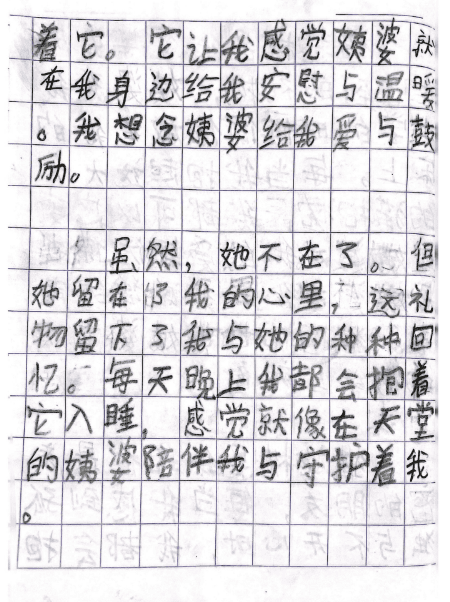 着它。它让我感觉姨婆就
在我身边给我安慰与温暖
。我想念姨婆给我爱与鼓
励。
虽然，她不在了。但
她留在了我的心里，这礼
物留下了我与她的种种回
忆。每天晚上我都会抱着
它入睡，感觉就像在天堂
的姨婆陪伴我与守护着我
。